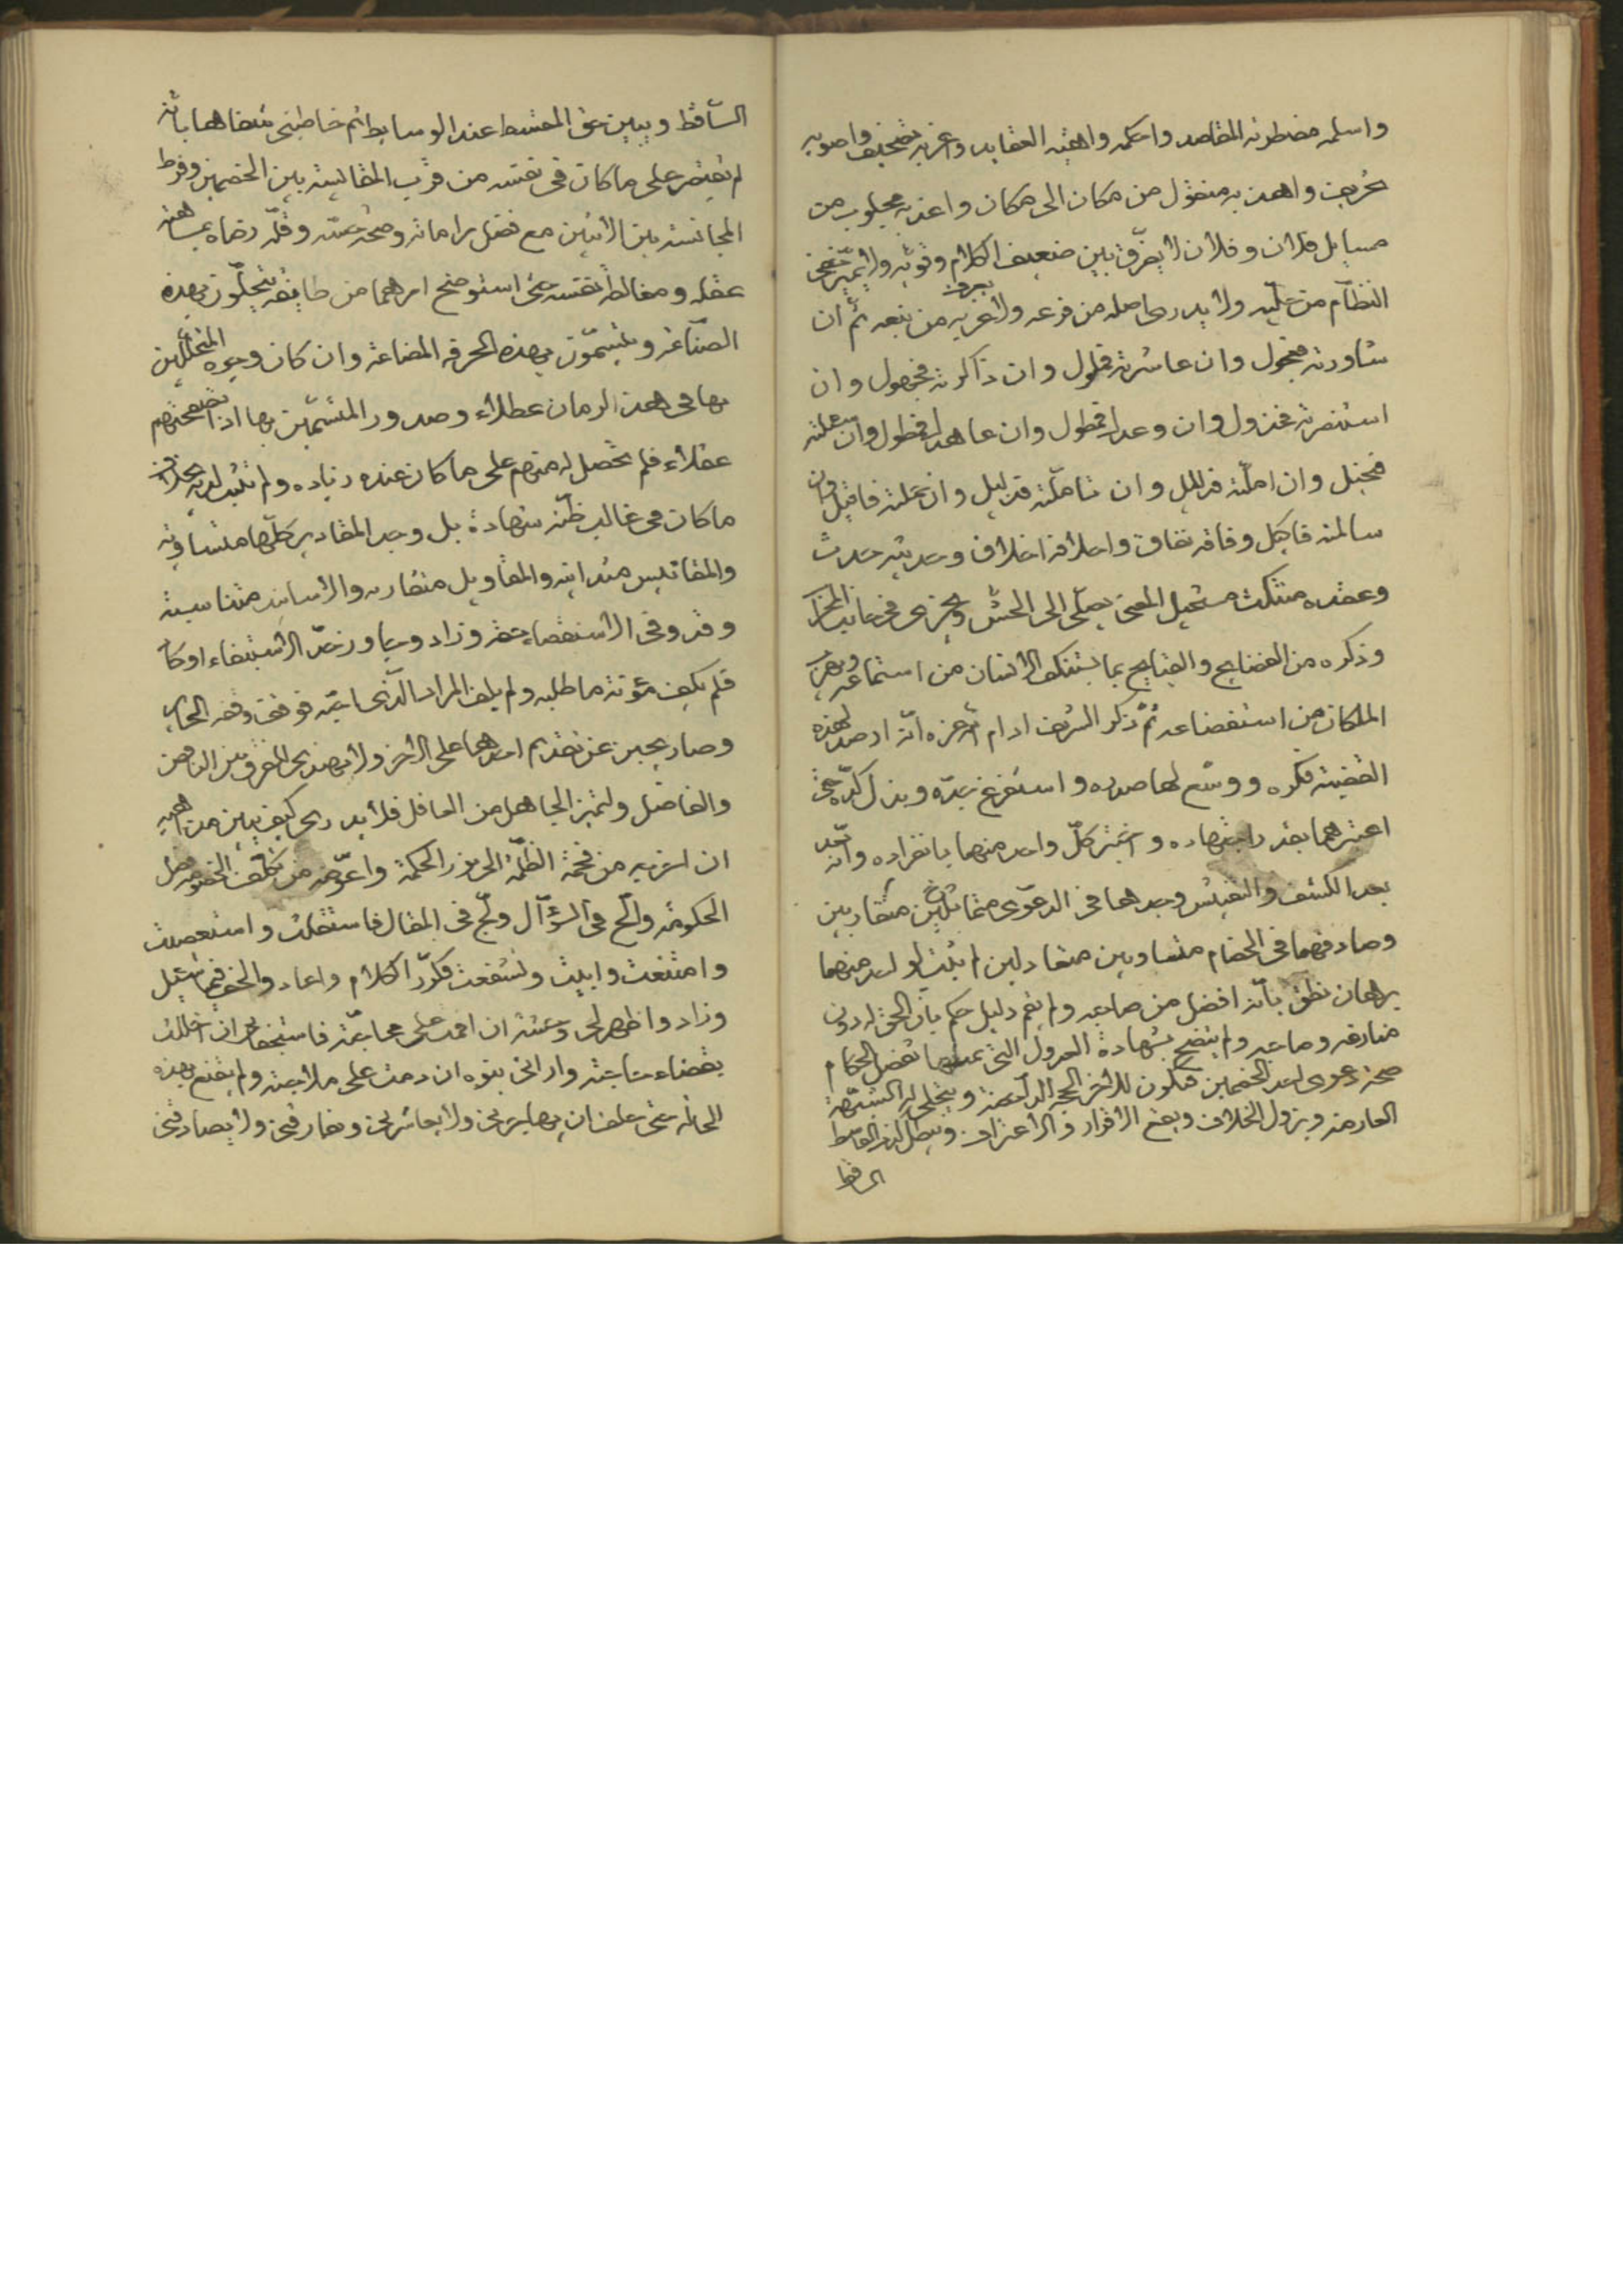 واسلمه مضطربة المقاصد واحكمه واهية العقايد واغربه تصحيف واصوبه
تحريف واهذبه منقول من مكان الى مكان واعذبه مجلوب من
مسايل فلان وفلان لا يفرق بين ضعيف الكلام وقويه ولا يميز
النظام من ولا يدرى اصله من فرعه ولا يعرف غربه من نبعه ثم ان
شاورته فجهول وان عاشرته فملول وان ذاكرته فجهول وان
استنصرته فخذول وان وعد فمطول وان عاهد وان سئلته
فبخيل وان املته فذليل وان تأملته وان
سالمته وفاقه نفاق واخلاقه اخلاق وحديثه حدث
وعقده منتكث مستحيل المعنى
وذكره من الفضايح والقبايح بما يستنكف الانسان من استماعه ويهرب
الملكان من استفضاعه ثم ذكر الشريف ادام الله عزه انه ارصد لهذه
القضية فكره ووسع لها صدره واستفرغ وبذل كده حتى
اعتبرهما بقدر اجتهاده واختبر كل واحد منهما بانفراده وانه
بعد الكشف والتفتيش وجدهما فى الدعوى متماثلين متقاربين
وصادفهما فى الخصام متساويين متعادلين لم يثبت لواحد منهما
برهان نطق بأنه افضل من صاحبه ولم يقم دليل حكم بان الحق له دون
مفارقه وصاحبه ولم يتضح بشهادة العدول التى بمثلها تفصل الحكام
صحة دعوى احد الخصمين فتكون للاخر الحجة الداحضة وينجلى له الشبهة
العارضة ويزول الخلاف ويقع الاقرار والاعتراف ويبطل القاسط
الساقط
الساقط ويبين حق المقسط عند الوسايط ثم خاطبنى شفاها بانه
لم يقتصر على ما كان فى نفسه من قرب المقايسة بين الخصمين وفرط
المجانسة بين الاثنين مع فضل براعاته وصحة حسه وقلة رضاه
عقله ومغالطة نفسه حتى استوضح امرهما من طايفة يتحلون بهذه
الصناعة ويتسمون بهذه الحرفة المضاعة وان كان وجوه المتحلين
بها فى هذا الزمان عطلاء وصدور المتسمين بها اذا تصفحتهم
عقلاء فلم تحصل له منهم على ما كان عنده زياده ولم يثبت لديه بخلاف
ما كان فى غالب ظنه شهادة بل وجد المقادير كلها متساوية
والمقاييس متدانية والمقاويل متقاربه والاسانيد متناسبة
وقد وفى الاستقصاء حقه وزاد وجاوز حد الاستيفاء او كاد
فلم يكف مؤنة ما طلبه ولم يلف المراد الذى فوقف وقفة الحيارى
وصار يجبن عن تقديم احدهما على الاخر ولا يهتدى الى الفرق بين الناقص
والفاضل ولتميز الجاهل من العاقل فلا يدرى كيف يبين
ان اخرجه من فحمة الظلمة الى نور الحكمة واعوضه من تكلف الخصومة فصل
الحكومة والح فى السؤال ولج فى المقال فاستثقلت واستعصيت
وامتنعت وابيت وتشفعت فكرر الكلام واعاد والحف
وزاد واظهر لى وحشة ان اقمت على مجانبته ان اخللت
بقضاء حاجته وارانى نبوه ان دمت على ملاجته ولم يقنع بهذه
الحالة حتى حلف ان يهاجرنى ولا يعاشرنى ويفارقنى ولا يصادقنى